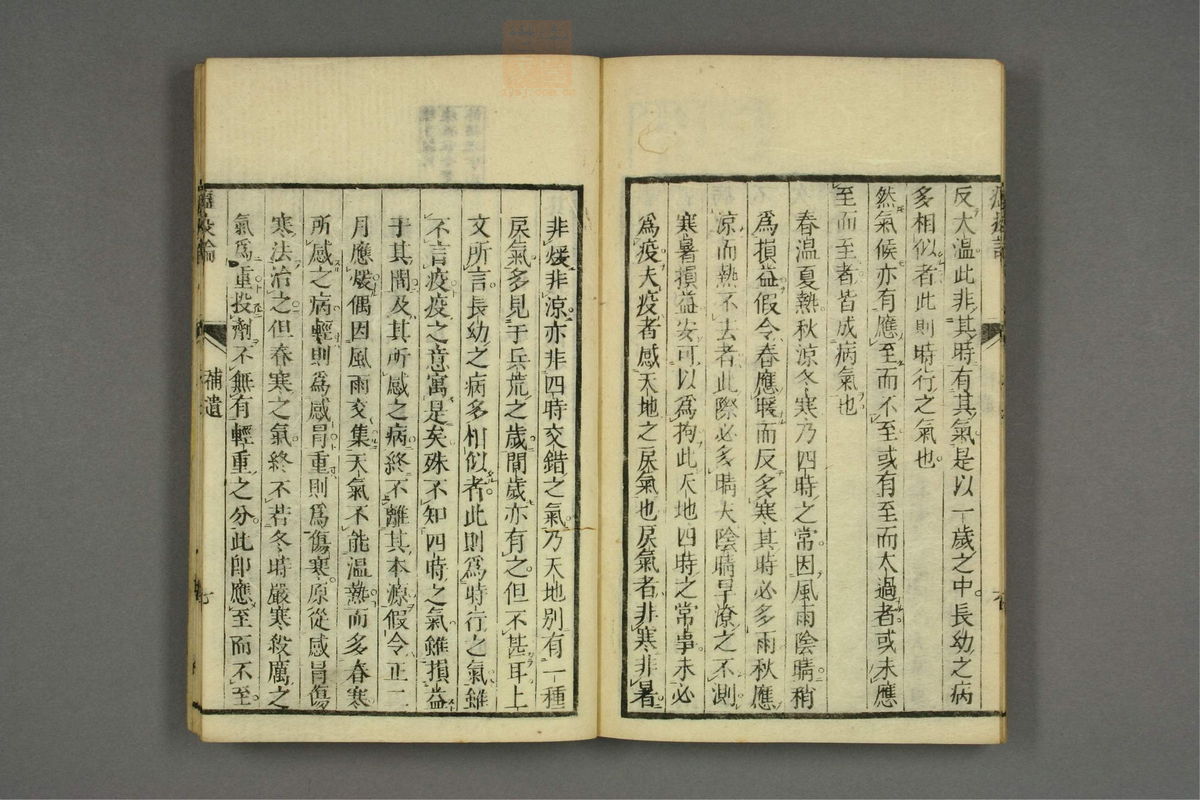 反大温此非其時有其氣是以一歲之中長幼之病
多相似者此則時行之氣也
然氣候亦有應至而不至或有至而太過者或未應
至而至者皆成病氣也
春温夏熱秋涼冬寒乃四時之常因風雨陰晴稍
爲損益假令春應暖而反多寒其時必多雨秋應
涼而熱不去者此際必多晴夫陰晴旱潦之不測
寒暑損益安可以爲拘此天地四時之常事未必
爲疫夫疫者感天地之戾氣也戾氣者非寒非暑
非煖非涼亦非四時交錯之氣乃天地別有一種
戾氣多見于兵荒之歲間歲亦有之但不甚耳上
文所言長幼之病多相似者此則爲時行之氣雖
不言疫疫之意寓是矣殊不知四時之氣雖損益
于其間及其所感之病終不離其本源假令正二
月應煖偶因風雨交集天氣不能温熱而多春寒
所感之病輕則爲感冒重則爲傷寒原從感冒傷
寒法治之但春寒之氣終不若冬時嚴寒殺厲之
氣爲重投劑不無有輕重之分此即應至而不至
瘟疫論
補遺
七